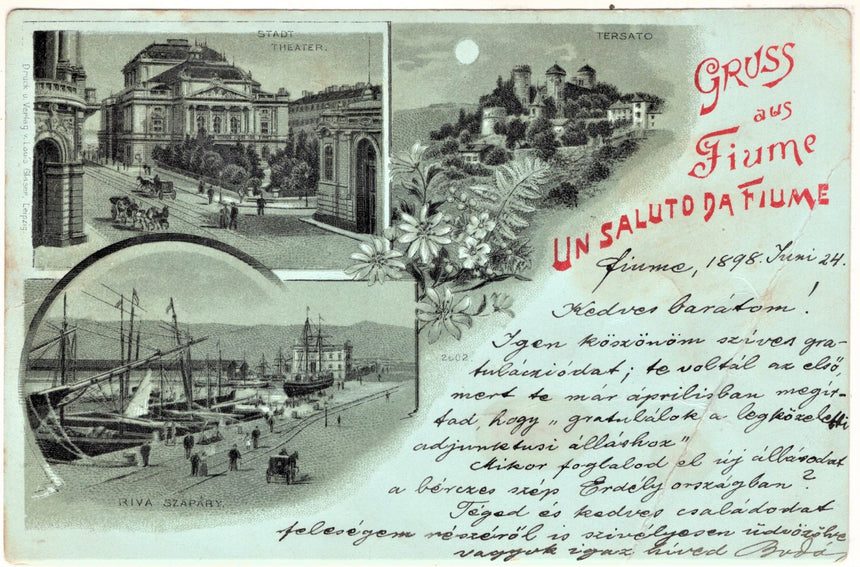 STADT
THEATER.
TERSATO
GRUSS
aus
Fiume
UN SALUTO DA FIUME
Druck u. Verlag v. Louis Glaser, Leipzig.
2602
RIVA SZAPÁRY.
Fiume, 1898. Juni 24.
Kedves barátom!
Igen köszönöm szives gra-
tulácziódat; te voltál az első,
mert te már áprilisban megir-
tad, hogy „gratulálok a legközelebbi
adjunktusi álláshoz"
Mikor foglalod el új állásodat
a bérczes szép Erdély országban?
Téged és kedves családodat
feleségem részéről is szivélyesen üdvözölve
vagyok igaz hived